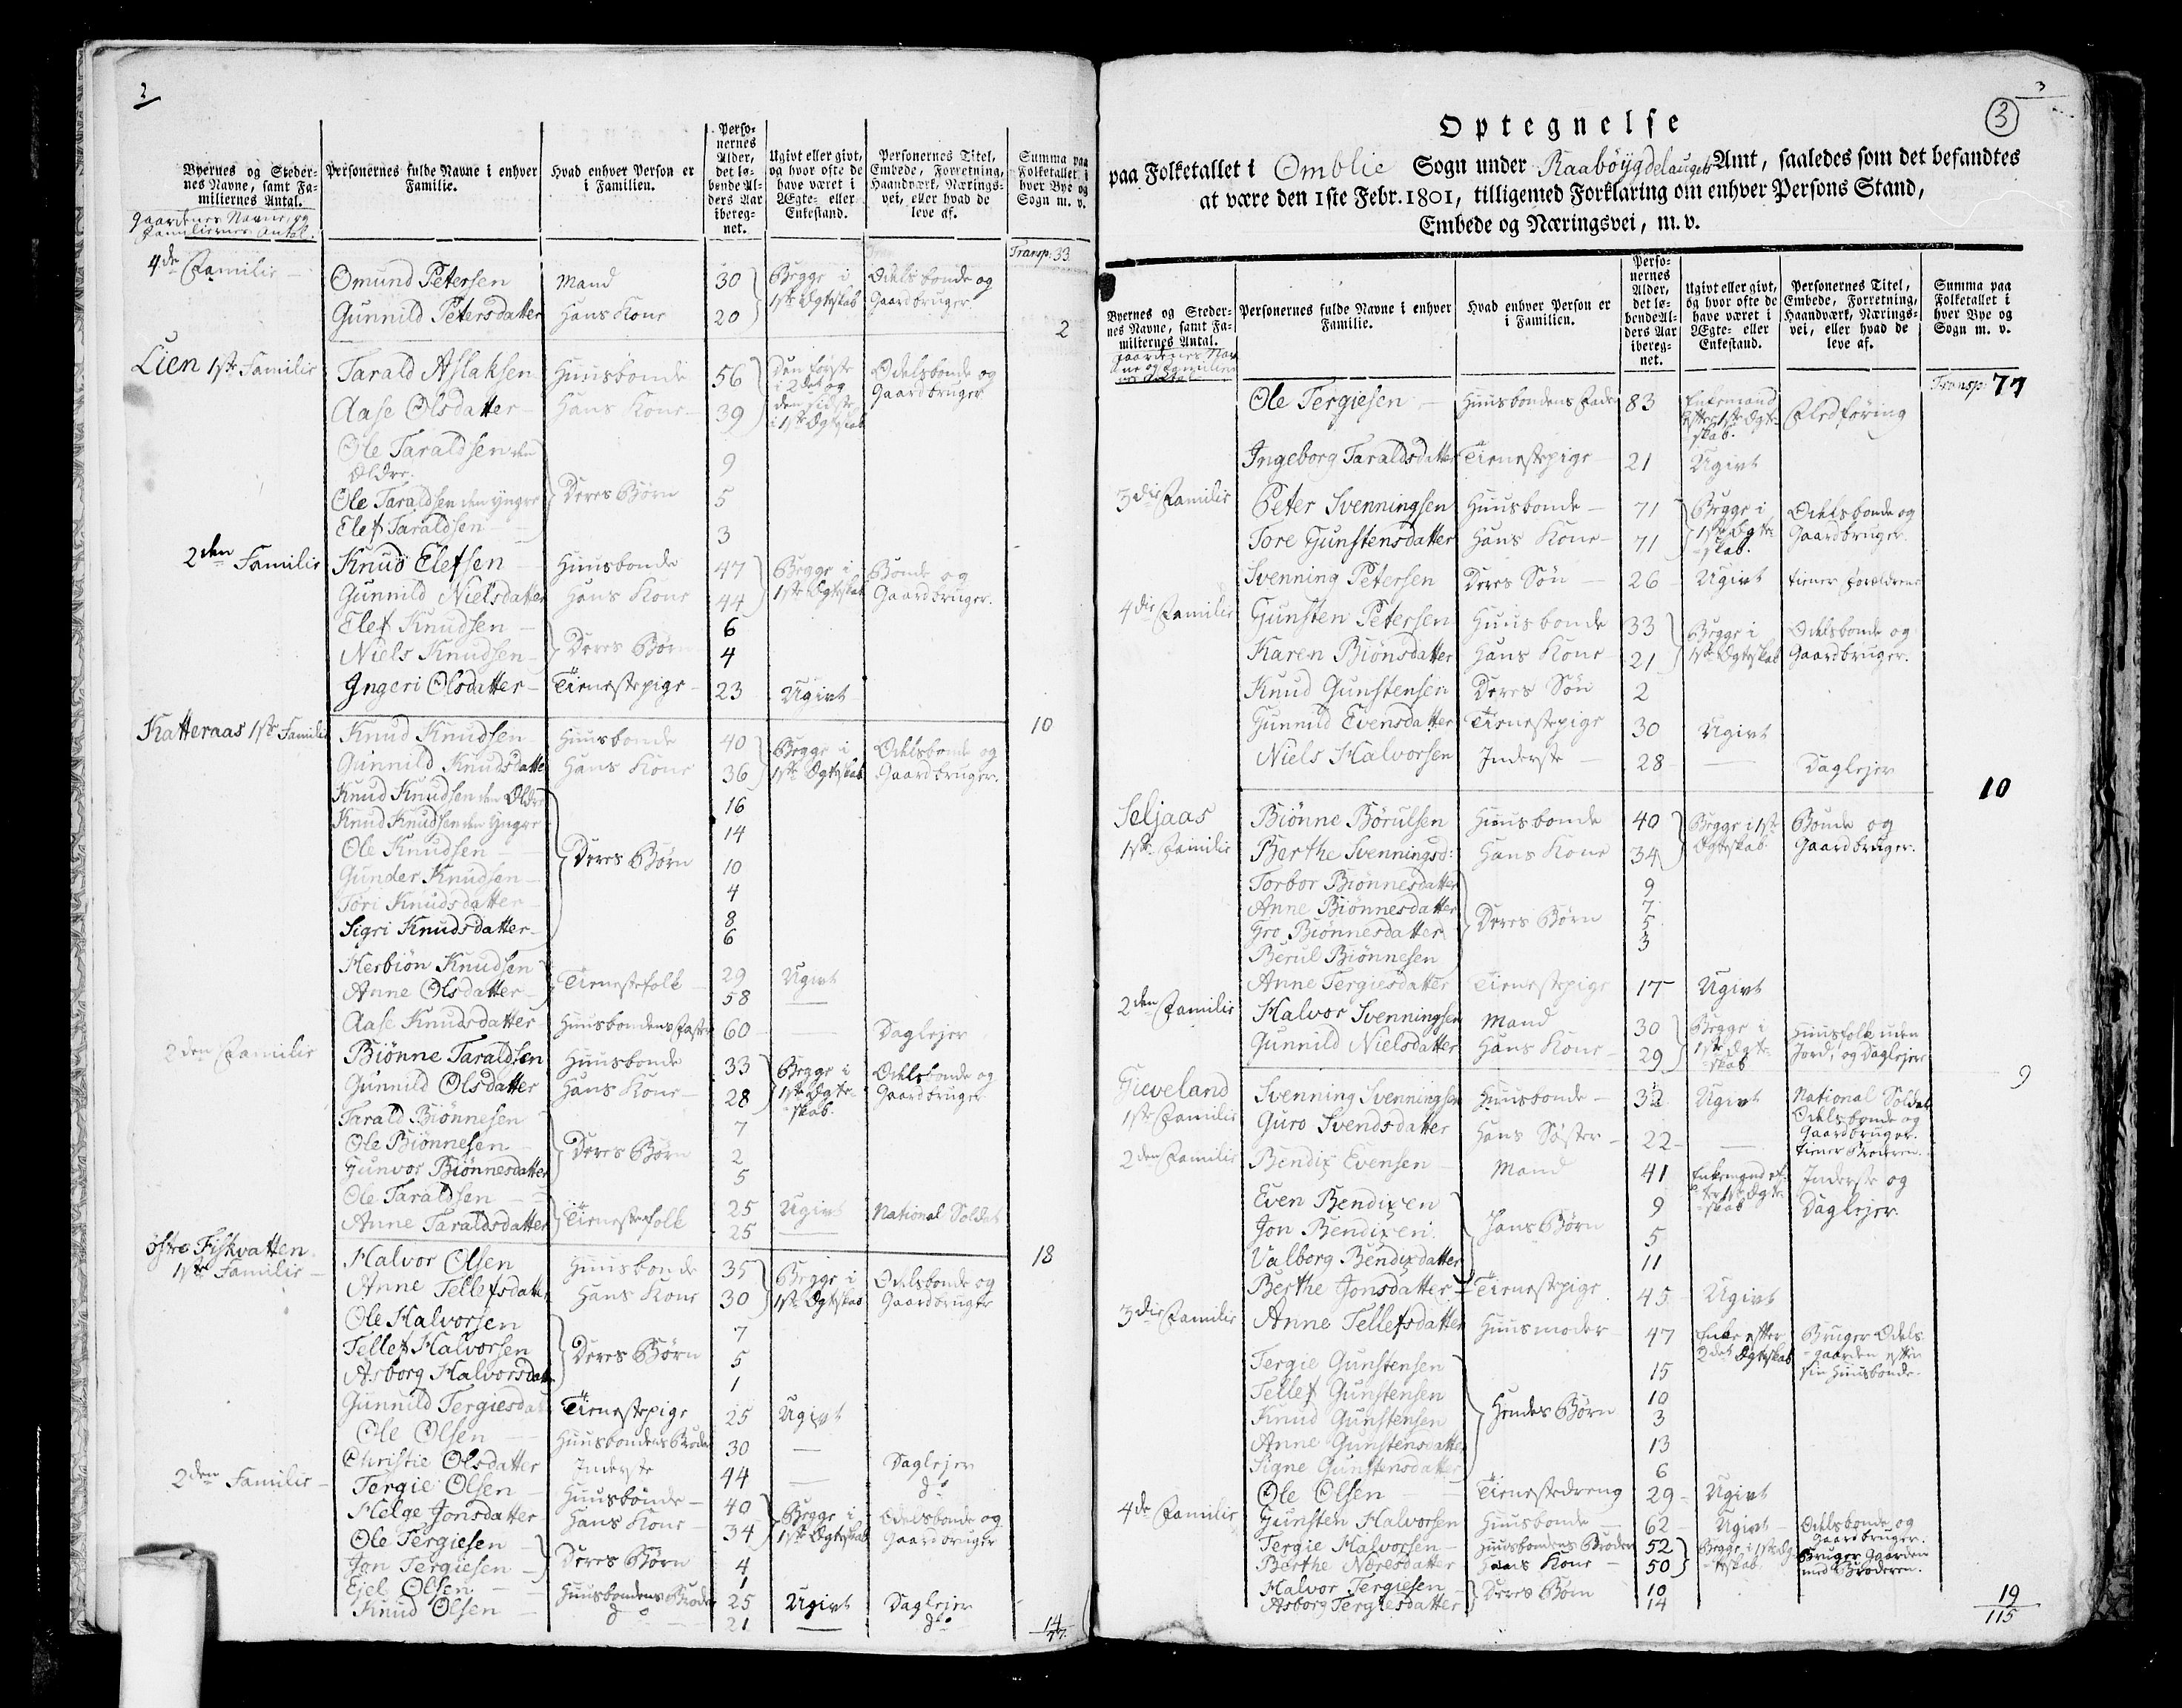 2
Byernes og Steder-
nes Navne, samt Fa-
miliernes Antal.
Gaardenes Navne, og
Familiernes Antal.
Personernes fulde Navne i enhver
Familie.
Hvad enhver Person er
i Familien.
Perso-
nernes
Alder,
det lø-
bende Al-
ders Aar
ibereg-
net.
Ugivt eller givt,
og hvor ofte de
have været i
Ægte- eller
Enkestand.
Personernes Titel,
Embede, Forretning,
Haandværk, Nærings-
vei, eller hvad de
leve af.
Summa paa
Folketallet i
hver Bye og
Sogn m. v.
Transp: 33
4de Familie Omund Petersen Mand 30 Begge i Odelsbonde og
Gunnild Petersdatter Hans Kone 20 1ste Ægteskab Gaardbruger
2
Lien 1ste Familie Tarald Aslaksen Huusbonde 56 Den første Odelsbonde og
i 2det og Gaardbruger
Aase Olsdatter Hans Kone 39 den sidste
i 1ste Ægteskab
Ole Taraldsen den 9
Ældre.
Ole Taraldsen den yngre Deres Børn 5
Elef Taraldsen 3
2den Familie Knud Elefsen Huusbonde 47 Begge i Bonde og
Gunnild Nielsdatter Hans Kone 44 1ste Ægteskab Gaardbruger.
Elef Knudsen 6
Niels Knudsen Deres Børn 4
Ingeri Olsdatter Tienestepige 23 Ugivt
10
Katteraas 1ste Familie Knud Knudsen Huusbonde 40 Begge i Odelsbonde og
Gunnild Knudsdatter Hans Kone 36 1ste Ægteskab Gaardbruger.
Knud Knudsen den Ældre 16
Knud Knudsen den yngre 14
Ole Knudsen Deres Børn 10
Gunder Knudsen 4
Tori Knudsdatter 8
Sigri Knudsdatter 6
Herbiön Knudsen Tienestefolk 29 Ugivt
Anne Olsdatter 58
Aase Knudsdatter Huusbondens Faster 60 Daglejer
2den Familie Biönne Taraldsen Huusbonde 33 Begge i Odelsbonde og
Gunnild Olsdatter Hans Kone 28 1ste Ægte- Gaardbruger
skab.
Tarald Biönnesen 7
Ole Biönnesen Deres Børn 2
Gunvor Biönnesdatter 5
Ole Taraldsen Tienestefolk 25 Ugivt National Soldat
Anne Taraldsdatter 25
18
östre Fiskvatten Halvor Olsen Huusbonde 35 Begge i Odelsbonde og
1ste Familie Anne Tellefsdatter Hans Kone 30 1ste Ægteskab Gaardbruger
Ole Halvorsen 7
Tellef Halvorsen Deres Børn 5
Asborg Halvorsdatter 1
Gunnild Tergiesdat Tienestepige 25 Ugivt
Ole Olsen Huusbondens Broder 30
Christie Olsdatter Inderste 44 Daglejer
2den Familie Tergie Olsen Huusbonde 40 Begge i do
Helge Jonsdatter Hans Kone 34 1ste Ægteskab Odelsbonde og
Ole Tergiesen Deres Børn 4 Gaardbruger
Jon Tergiesen 1
Ejel Olsen Huusbondens Broder 25 Ugivt Daglejer
Knud Olsen do 21 do
14
77
3
3
Optegnelse
paa Folketallet i Omblie Sogn under Raabøygdelaugets Amt, saaledes som det befandtes
at være den 1ste Febr. 1801, tilligemed Forklaring om enhver Persons Stand,
Embede og Næringsvei, m. v.
Byernes og Steder-
nes Navne, samt Fa-
miliernes Antal.
Personernes fulde Navne i enhver
Familie.
Hvad enhver Person er
i Familien.
Perso-
nernes
Alder,
det lø-
bende Al-
ders Aar
ibereg-
net.
Ugivt eller givt,
og hvor ofte de
have været i
Ægte- eller
Enkestand.
Personernes Titel,
Embede, Forretning,
Haandværk, Nærings-
vei, eller hvad de
leve af.
Summa paa
Folketallet i
hver Bye og
Sogn m. v.
Transp: 77
Ole Tergiesen Huusbondens Fader 83 Enkemand Fledføring
efter 1ste Ægte-
skab.
Ingeborg Taraldsdatter Tienestepige 21 Ugivt
3die Familie Peter Svenningsen Huusbonde 71 Begge i Odelsbonde og
Tore Gunstensdatter Hans Kone 71 1ste Ægte- Gaardbruger
skab.
Svenning Petersen Deres Søn 26 Ugivt tiener Forældrene
4die Familie Gunsten Petersen Huusbonde 33 Begge i Odelsbonde og
Karen Biönsdatter Hans Kone 21 1ste Ægteskab Gaardbruger.
Knud Gunstensen Deres Søn 2
Gunnild Evensdatter Tienestepige 30 Ugivt
Niels Halvorsen Inderste 28 Daglejer
10
Seljaas Biönne Börulsen Huusbonde 40 Begge i 1ste Bonde og
1ste Familie Berthe Svenningsd: Hans Kone 34 Ægteskab Gaardbruger.
Torbor Biönnesdatter 9
Anne Biönnesdatter 7
Gro Biönnesdatter Deres Børn 5
Berul Biönnesen 3
Anne Tergiesdatter Tienestepige 17 Ugivt
2den Familie Halvor Svenningsen Mand 30 Begge i Huusfolk uden
Gunnild Nielsdatter Hans Kone 29 1ste Ægte- Jord, og Daglejer
skab
9
Gieveland Svenning Svenningsen Huusbonde 32 Ugivt National Soldat
1ste Familie Odelsbonde og
Gaardbruger.
Guro Svendsdatter Hans Søster 22 tiener Broderen.
2den Familie Bendix Evensen Mand 41 Enkemand ef- Inderste og
Even Bendixen 9 ter 1ste Ægte- Daglejer
skab
Jon Bendixen Hans Børn 5
Valborg Bendixdatter 11
Berthe Jonsdatter Tienestepige 45 Ugivt
3die Familie Anne Tellefsdatter Huusmoder 47 Enke efter Bruger Odels
2det Ægteskab gaarden efter
sin Huusbonde.
Tergie Gunstensen 15
Tellef Gunstensen 10
Knud Gunstensen Hendes Børn 3
Anne Gunstensdatter 13
Signe Gunstensdatter 6
Ole Olsen Tienestedreng 29 Ugivt
4de Familie Gunsten Halvorsen Huusbonde 62 Ugivt Odelsbonde og
Gaardbruger.
Tergie Halvorsen Huusbondens Broder 52 Begge i 1ste Æg- Bruger Gaarden
Berthe Næresdatter Hans Kone 50 teskab med Broderen.
Halvor Tergiesen Deres Børn 10
Asborg Tergiesdatter 14
19
115